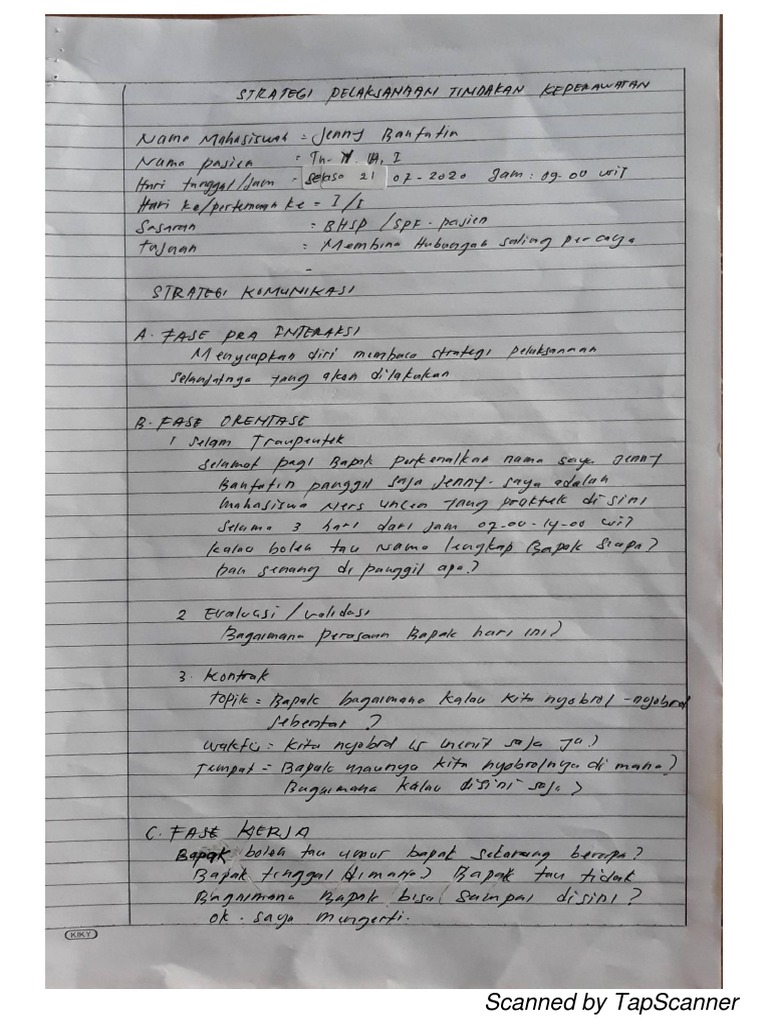 STRATEGI PELAKSANAAN TINDAKAN KEPERAWATAN
Nama Mahasiswa = Jenny Banfatin
Nama pasien = Tn. I
Hari tanggal/Jam = Selasa 21 07-2020 Jam : 09.00 wit
Hari ke/pertemuan ke = I/I
Sasaran : BHSP /SPK. pasien
Tujuan : Membina Hubungan saling percaya
STRATEGI KOMUNIKASI
A. FASE PRA INTERAKSI
Menyiapkan diri membaca strategi pelaksanaan
selanjutnya yang akan dilakukan
B. FASE ORENTASE
1 Salam Traupeutek
selamat pagi Bapak perkenalkan nama saya Jenny
Banfatin panggil saja Jenny. saya adalah
mahasiswa Ners uncen yang praktek di sini
selama 3 hari dari jam 07.00-14.00 wit
kalau boleh tau Nama lengkap Bapak siapa?
dan senang di panggil apa?
2 Evaluasi /validasi
Bagaimana perasaan Bapak hari ini?
3. Kontrak
topik = Bapak bagaimana kalau kita nyobrol -nyobrol
sebentar ?
waktu = kita nyobrol 15 menit saja ya?
Tempat = Bapak maunya kita nyobrolnya di mana?
Bagaimana kalau disini saja?
C. FASE KERJA
Bapak boleh tau umur bapak sekarang berapa?
Bapak tinggal dimana? Bapak tau tidak
Bagaimana Bapak bisa sampai disini?
ok. saya mengerti.
KIKY
Scanned by TapScanner